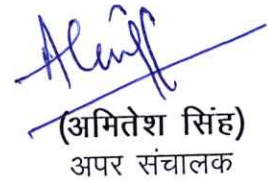 (अमितेश सिंह)
अपर संचालक